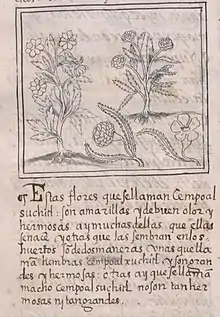 ¶ Estas flores que se llaman Cempoal
suchitl: son amarillas y de buen olor y
hermosas ay muchas dellas que ellas
se nacẽ y otras que las siembran en los
huertos son de dos maneras unas que lla
mã hembras cempoalxuchitl y son gran
des y hermosas otras ay que se llamã
macho Cempoalsuchitl no son tan her
mosas ni tan grandes.